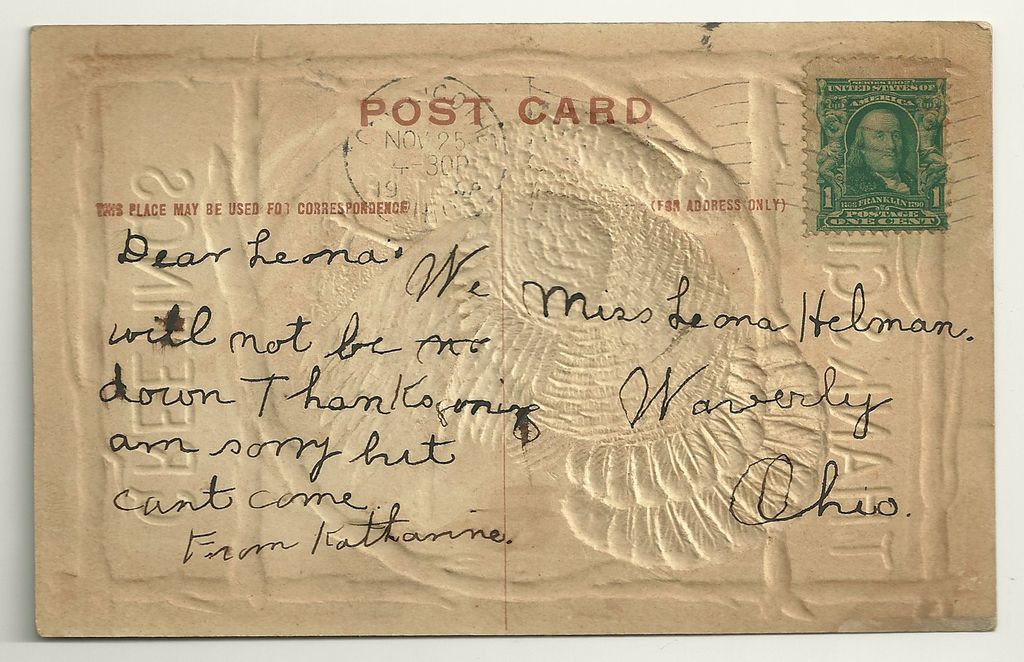 POST CARD
NOV 25
4-30P
19
THIS PLACE MAY BE USED FOR CORRESPONDENCE
(FOR ADDRESS ONLY)
SERIES 1902
UNITED STATES OF
AMERICA
1 1
FRANKLIN
POSTAGE
ONE CENT
Dear Leona: We
will not be
down Thanksgiving
am sorry but
cant come
From Katharine.
Miss Leona Helman.
Waverly
Ohio.
GREETINGS